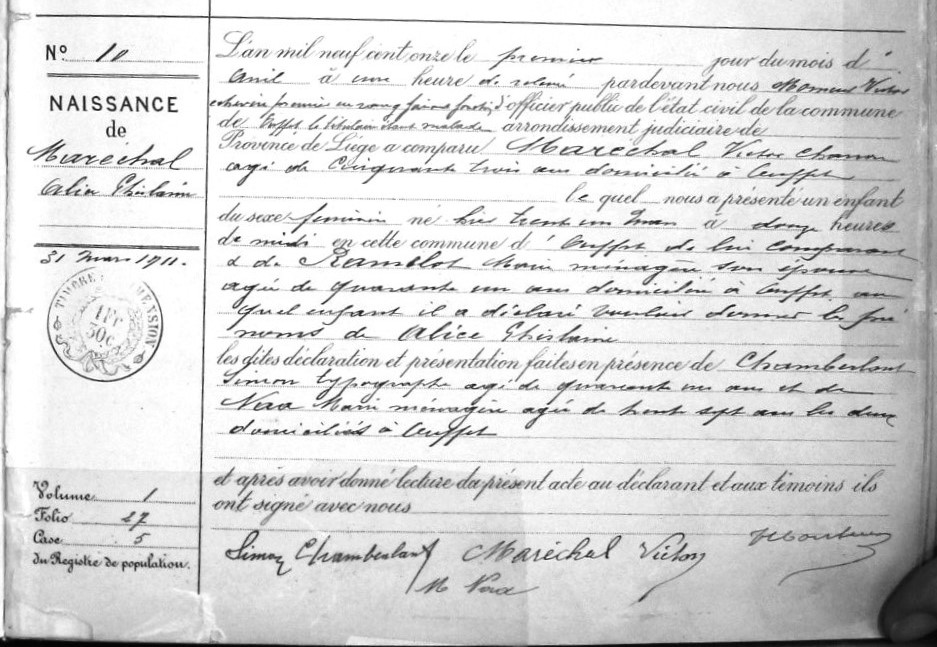 N° 10
NAISSANCE
de
Maréchal
Alice Ghislaine
31 Mars 1911.
TIMBRE DIMENSION
1 FR
30c
Volume 1
Folio 27
Case 5
du Registre de population.
L'an mil neuf cent onze le premier jour du mois d'
Avril à une heure de relevé pardevant nous Victor
échevin premier en rang faisant fonction d'officier public de l'état civil de la commune
de Ouffet le titulaire étant malade arrondissement judiciaire de
Province de Liége a comparu Maréchal Victor
agé de Cinquante trois ans domicilié à Ouffet
le quel nous a présenté un enfant
du sexe feminin né hier trent un Mars à douze heures
de midi en cette commune d'Ouffet de lui comparant
& de Ramelot Marie ménagère son épouse
agée de quarante un ans domiciliée à Ouffet au
quel enfant il a déclaré vouloir donner les pré
noms de Alice Ghislaine
les dites déclaration et présentation faites en présence de Chamberlant
Simon typographe agé de quarante un ans et de
Noxa Marie ménagère agée de trent sept ans les deux
domiciliés à Ouffet
et après avoir donné lecture du présent acte au déclarant et aux témoins ils
ont signé avec nous
Simon Chamberlant Maréchal Victor
M Noxa